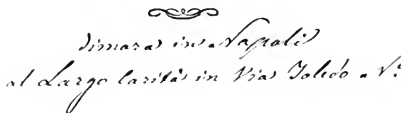 dimora in Napoli
al Largo Carità in Via Toledo N.º